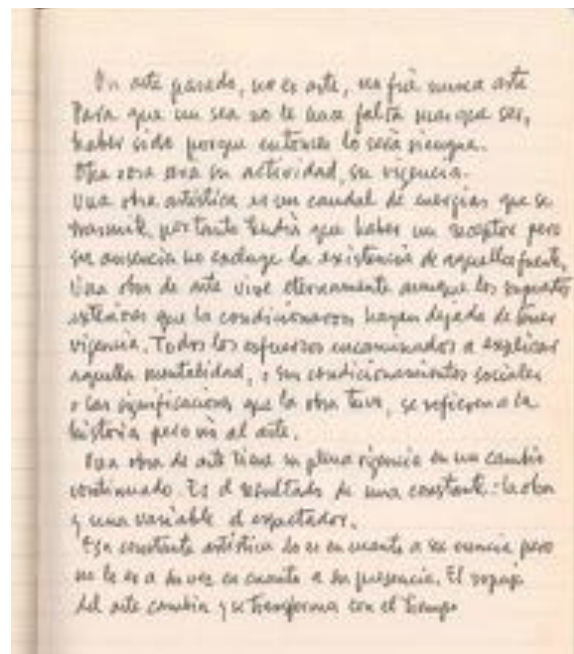 Un arte pasado, no es arte, no fué nunca arte
Para que un sea no le hace falta mas que ser,
haber sido porque entonces lo será siempre.
Otra cosa sea su actividad, su vigencia.
Una obra artística es un caudal de energías que se
transmite, por tanto tendrá que haber un receptor pero
su ausencia no excluye la existencia de aquella fuente.
Una obra de arte vive eternamente aunque los
exteriores que la condicionaron hayan dejado de tener
vigencia. Todos los esfuerzos encaminados a explicar
aquella mentalidad, o sus condicionamientos sociales
o las significaciones que la obra tuvo, se refieren a la
historia pero no al arte.
Una obra de arte tiene su plena vigencia en un cambio
continuado. Es el resultado de una constante: la obra
y una variable el espectador.
Esa constante artística lo es en cuanto a su esencia pero
no lo es a su vez en cuanto a su presencia. El ropaje
del arte cambia y se transforma con el tiempo